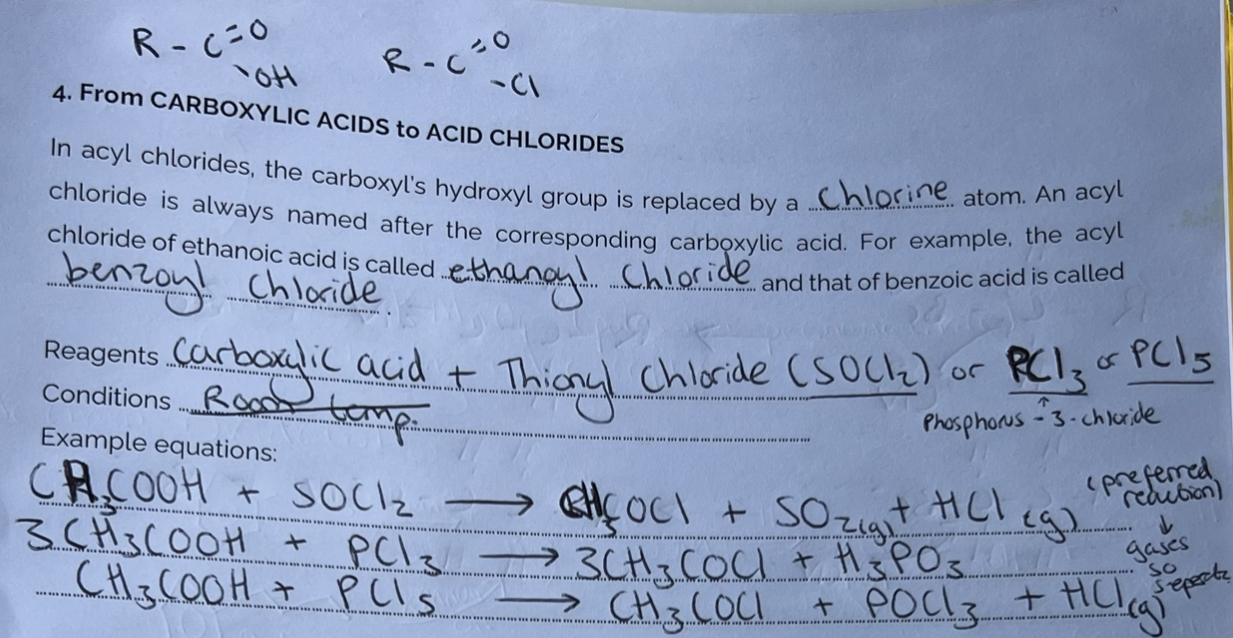 R - C =O R - C =O
-OH -Cl
4. From CARBOXYLIC ACIDS to ACID CHLORIDES
In acyl chlorides, the carboxyl's hydroxyl group is replaced by a chlorine atom. An acyl
chloride is always named after the corresponding carboxylic acid. For example, the acyl
chloride of ethanoic acid is called ethanoyl chloride and that of benzoic acid is called
benzoyl chloride.
Reagents Carboxylic acid + Thionyl chloride (SOCl₂) or PCl₃ or PCl₅
Conditions Room temp.
Phosphorus-3-chloride
Example equations:
CH₃COOH + SOCl₂ → CH₃COCl + SO₂(g) + HCl (g) (preferred reduction)
3CH₃COOH + PCl₃ → 3CH₃COCl + H₃PO₃ gases so
CH₃COOH + PCl₅ → CH₃COCl + POCl₃ + HCl(g)